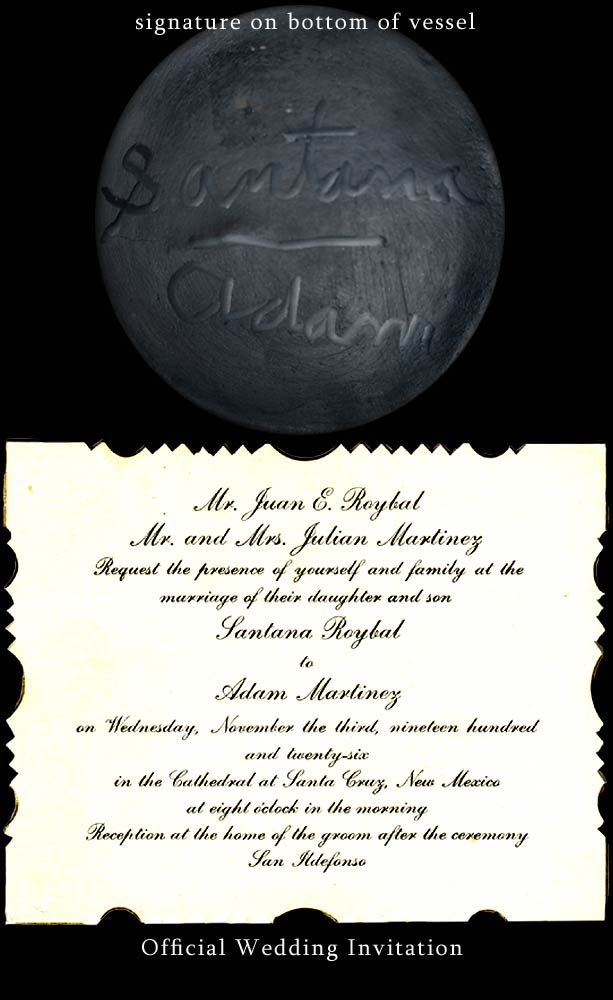 signature on bottom of vessel
Santana
Adam
Mr. Juan E. Roybal
Mr. and Mrs. Julian Martinez
Request the presence of yourself and family at the
marriage of their daughter and son
Santana Roybal
to
Adam Martinez
on Wednesday, November the third, nineteen hundred
and twenty-six
in the Cathedral at Santa Cruz, New Mexico
at eight o'clock in the morning
Reception at the home of the groom after the ceremony
San Ildefonso
Official Wedding Invitation